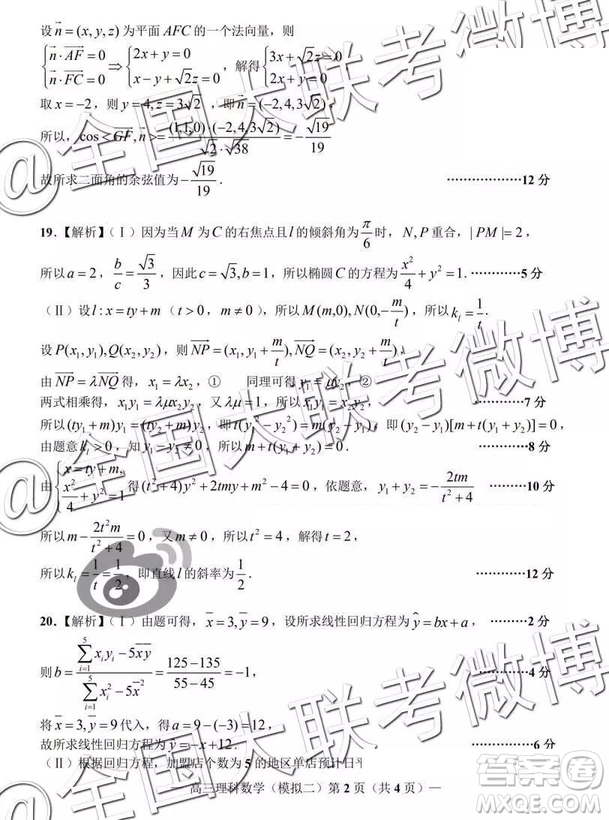 设 n⃗=(x, y, z) 为平面 AFC 的一个法向量，则
{n⃗·AF⃗=0, n⃗·FC⃗=0 ⇒ {2x+y=0, x-y+√2z=0，解得{3x+√2z=0, 2x+y=0
取 x=-2，则 y=4, z=3√2，即 n⃗=(-2,4,3√2)
所以，cos<GF⃗, n⃗>=(1,1,0)·(-2,4,3√2)/(√2·√38)=√19/19
故所求二面角的余弦值为-√19/19. ··················12 分
19.【解析】(Ⅰ) 因为当 M 为 C 的右焦点且 l 的倾斜角为 π/6 时，N, P 重合，|PM|=2，
所以 a=2，b/c=√3/3，因此 c=√3, b=1，所以椭圆 C 的方程为 x²/4+y²=1. ············5 分
(Ⅱ) 设 l: x=ty+m（t>0，m≠0），所以 M(m,0), N(0,-m/t)，所以 kₗ=1/t.
设 P(x₁,y₁), Q(x₂,y₂)，则 NP⃗=(x₁, y₁+m/t), NQ⃗=(x₂, y₂+m/t).
由 NP⃗=λNQ⃗ 得，x₁=λx₂，① 同理可得 y₁=μy₂，②
两式相乘得，x₁y₁=λμx₂y₂，又 λμ=1，所以 x₁y₁=x₂y₂， ············7 分
所以 (ty₁+m)y₁=(ty₂+m)y₂，即 t(y₁²-y₂²)=m(y₂-y₁)，即 (y₁-y₂)[m+t(y₁+y₂)]=0，
由题意 kₗ>0，知 y₁-y₂≠0，所以 m+t(y₁+y₂)=0. ············8 分
由{x=ty+m, x²/4+y²=1 得 (t²+4)y²+2tmy+m²-4=0，依题意，y₁+y₂=-2tm/(t²+4) ··········10 分
所以 m-2t²m/(t²+4)=0，又 m≠0，所以 t²=4，解得 t=2，
所以 kₗ=1/t=1/2，即直线 l 的斜率为 1/2. ············12 分
20.【解析】(Ⅰ) 由题可得，x̄=3, ȳ=9，设所求线性回归方程为 ŷ=bx+a， ·········2 分
则 b=(∑ᵢ₌₁⁵xᵢyᵢ-5x̄ȳ)/(∑ᵢ₌₁⁵xᵢ²-5x̄²)=(125-135)/(55-45)=-1， ············4 分
将 x̄=3, ȳ=9 代入，得 a=9-(-3)=12，
故所求线性回归方程为 y=-x+12. ············6 分
(Ⅱ) 根据回归方程，加盟店个数为 5 的地区单店预计日平
— 高三理科数学（模拟二）第 2 页（共 4 页）—
@全国大联考微博
@全国大联考微博
答案圈
MXQE.COM